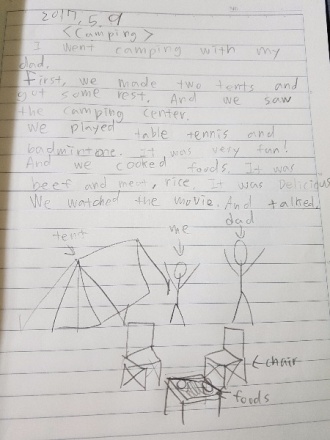 2017. 5. 9
<Camping>
I went camping with my
dad.
First, we made two tents and
got some rest. And we saw
the camping center.
We played table tennis and
badmintone. It was very fun!
And we cooked foods. It was
beef and meat, rice. It was Delicious
We watched the movie. And talked.
dad
me
tent
chair
foods